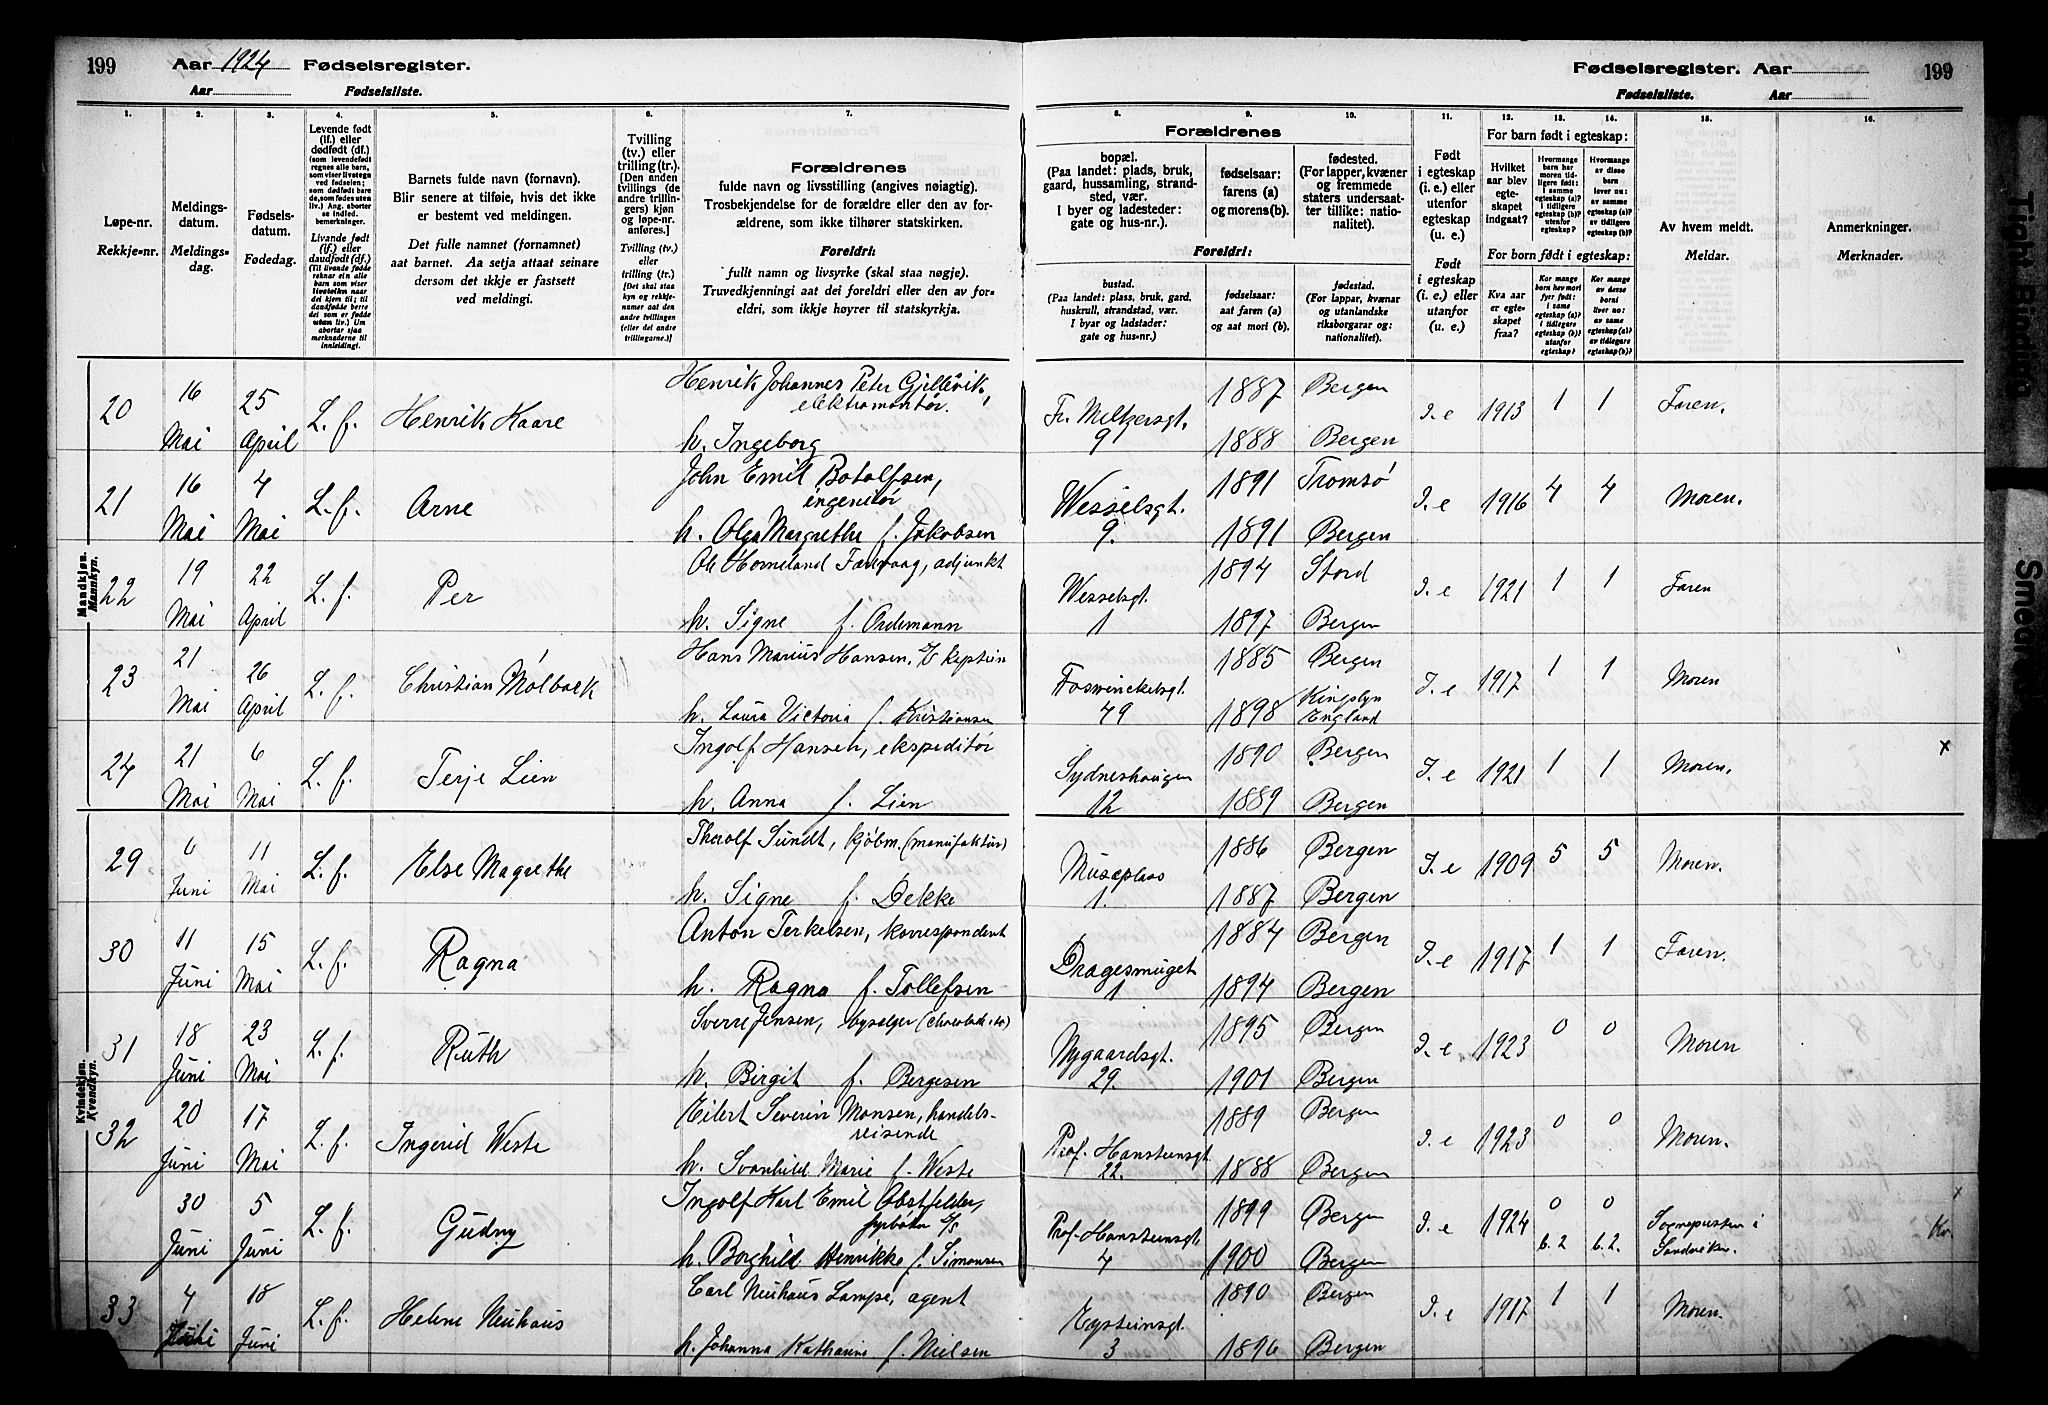 199 Aar 1924 Fødselsregister.
Aar Fødselsliste.
Fødselsregister. Aar 199
Fødselsliste. Aar
1. 2. 3. 4. 5. 6. 7. 8. 9. 10. 11. 12. 13. 14. 15. 16.
Løpe-nr.
Rekkje-nr.
Meldings-
datum.
Meldings-
dag.
Fødsels-
datum.
Fødedag.
Levende født
(lf.) eller
dødfødt (df.)
Barnets fulde navn (fornavn).
Blir senere at tilføie, hvis det ikke
er bestemt ved meldingen.
Det fulle namnet (fornamnet)
aat barnet. Aa setja attaat seinare
dersom det ikkje er fastsett
ved meldingi.
Tvilling
(tv.) eller
trilling (tr.).
Forældrenes
fulde navn og livsstilling (angives nøiagtig).
Trosbekjendelse for de forældre eller den av for-
ældrene, som ikke tilhører statskirken.
Foreldri:
fullt namn og livsyrke (skal staa nøgje).
Truvedkjenningi aat dei foreldri eller den av for-
eldri, som ikkje høyrer til statskyrkja.
Forældrenes
bopæl.
(Paa landet: plads, bruk,
gaard, hussamling, strand-
sted, vær.
I byer og ladesteder:
gate og hus-nr.).
fødselsaar:
farens (a)
og morens(b).
fødested.
(For lapper, kvæner
og fremmede
staters undersaat-
ter tillike: natio-
nalitet).
Foreldri:
bustad.
(Paa landet: plass, bruk, gard,
huskrull, strandstad, vær.
I byar og ladstader:
gate og hus-nr.)
fødselsaar:
aat faren (a)
og aat mori (b).
fødestad.
(For lappar, kvænar
og utanlandske
riksborgarar og:
nationalitet).
Født
i egteskap
(i. e.) eller
utenfor
egteskap
(u. e.)
Født
i egteskap
(i. e.) eller
utanfor
(u. e.)
For barn født i egteskap:
Hvilket
aar blev
egte-
skapet
indgaat?
For born født i egteskap:
Kva aar
er egte-
skapet
fraa?
Av hvem meldt.
Meldar.
Anmerkninger.
Merknader.
Mandkjøn.
Mannkyn.
20 16 Mai 25 April L. f. Henrik Kaare Henrik Johannes Peter Gjellevik, elektromontør. h. Ingeborg Fr. Meltzersgt. 9 1887 1888 Bergen Bergen I. e 1913 1 1 Faren.
21 16 Mai 4 Mai L. f. Arne John Emil Botolfsen, ingeniør h. Olga Margrethe f. Jakobsen Wesselsgt. 9. 1891 1891 Tromsø Bergen I. e 1916 4 4 Moren.
22 19 Mai 22 April L. f. Per Ole Horneland Farevaag, adjunkt h. Signe f. Ordemann Wesselsgt. 1 1894 1897 Stord Bergen I. e 1921 1 1 Faren
23 21 Mai 26 April L. f. Christian Mølbach Hans Marius Hansen, kaptein h. Laura Victoria f. Kristiansen Fosswinckelsgt. 49 1885 1898 Bergen Kingslyn England I. e 1917 1 1 Moren
24 21 Mai 6 Mai L. f. Terje Lien Ingolf Hansen, ekspeditør h. Anna f. Lien Sydneshaugen 12 1890 1889 Bergen Bergen I. e 1921 1 1 Moren. x
Kvindekjøn.
Kvendkyn.
29 6 Juni 11 Mai L. f. Else Magrethe Thorolf Sundt, kjøbm. (manufaktur) h. Signe f. Dekke Muséplass 1. 1886 1887 Bergen Bergen I. e 1909 5 5 Moren.
30 11 Juni 15 Mai L. f. Ragna Anton Terkelsen, korrespondent h. Ragna f. Tollefsen Dragesmuget 1 1884 1894 Bergen Bergen I. e 1917 1 1 Faren.
31 18 Juni 23 Mai L. f. Ruth Sverre Jensen, bysælger h. Birgit f. Bergesen Nygaardsgt. 29. 1895 1901 Bergen Bergen I. e 1923 0 0 Moren
32 20 Juni 17 Mai L. f. Ingerid Weste Eilert Severin Monsen, handels-reisende h. Svanhild Marie f. Weste Prof. Hansteensgt. 22. 1889 1888 Bergen Bergen I. e 1923 0 0 Moren.
30 Juni 5 Juni L. f. Gudny Ingolf Karl Emil Obstfelder, fyrbøter h. Borghild Henrikke f. Simonsen Prof. Hansteensgt. 4 1899 1900 Bergen Bergen I. e 1924 0 b. 2 0 b. 2. Sogneprsten i Sandviken. x
33 4 18 Juni L. f. Helene Neuhaus Carl Neuhaus Lampe, agent h. Johanna Kathrine f. Nielsen Eysteinsgt. 3 1890 1896 Bergen Bergen I. e 1917 1 1 Moren.
Tight Binding